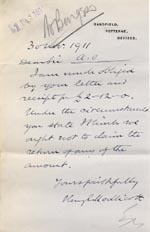 HANDFIELD,
POTTERNE,
DEVIZES.
30 Nov. 1911
Dear Sir
I am much obliged
by your letter and
receipt for £2-12-0.
Under the circumstances
you state I think we
ought not to claim the
return of any of the
amount.
Yours faithfully